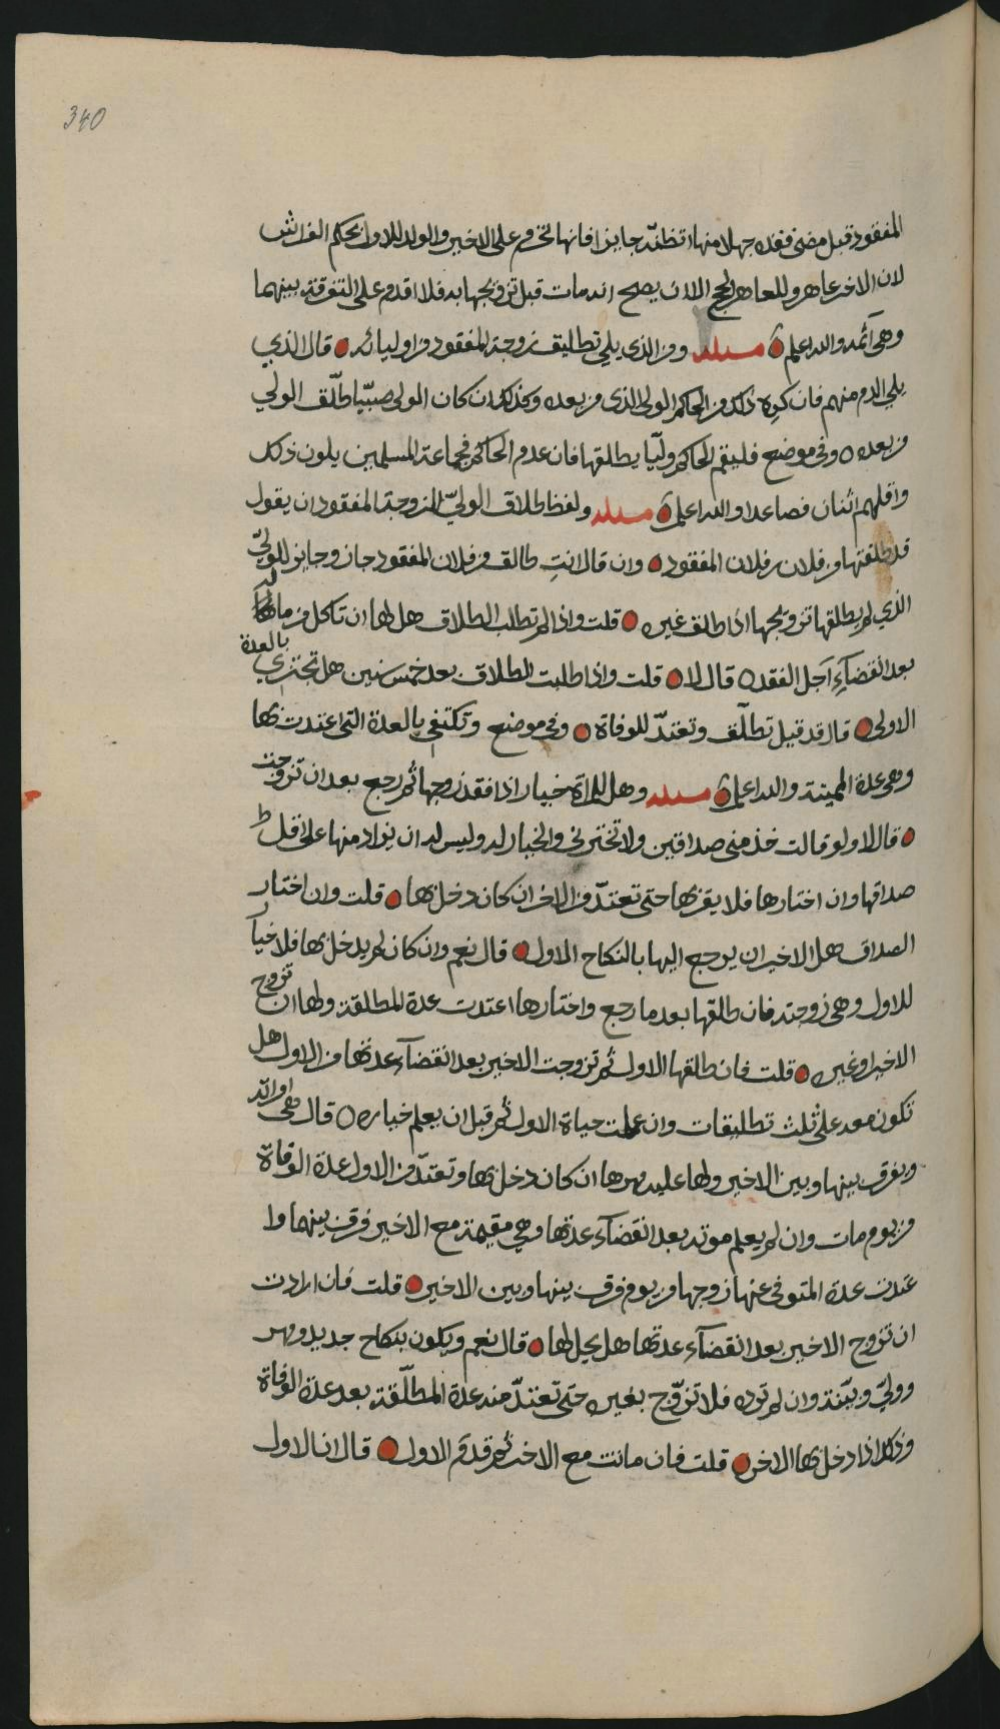 340
المفقود قبل مضى فقده جهلا منها او تظنه جايزا فانها تحرم على الاخير والولد للاول بحكم الفراش
لان الاخر عاهر وللعاهر الحجر الا ان يصح انه مات قبل تزويجها به فلا اقدم على التفرقة بينهما
وهى آثمه والله اعلم مسئله ومن الذى يلي تطليق زوجة المفقود من اوليائه قال الذي
يلي الدم منهم فان كره ذلك امر الحاكم الولى الذى من بعده وكذلك ان كان الولى صبيّا طلّق الولي
من بعده وفى موضع فليقم الحاكم وليّا يطلقها فان عدم الحاكم فجماعة المسلمين يلون ذلك
واقلهم اثنان فصاعدا والله اعلم مسئله ولفظ طلاق الوليّ لزوجة المفقود ان يقول
قد طلقتها من فلان بن فلان المفقود وان قال انتِ طالق من فلان المفقود جاز وجايز للوليّ
الذي لم يطلقها تزويجها اذا طلق غيره قلت واذا لم تطلب الطلاق هل لها ان تاكل من ماله
بعد انقضآء اجل الفقد قال لا قلت واذا طلبت الطلاق بعد خمس سنين هل تجتزي بالعدة
الاولى قال قد قيل تطلّق وتعتدّ للوفاة وفى موضع وتكتفى بالعدة التى اعتدت بها
وهى عدة المميتة والله اعلم مسئله وهل للمراة خيار اذا فقد زوجها ثم رجع بعد ان تزوجت
قال لا ولو قالت خذ منى صداقين ولا تختر لى والخيار له وليس له ان يزاد منها على اقل
صداقها وان اختارها فلا يقربها حتى تعتدّ من الاخر ان كان دخل بها قلت وان اختار
الصداق هل للاخير ان يرجع اليها بالنكاح الاول قال نعم وان كان لم يدخل بها فلا خيار
للاول وهى زوجته فان طلقها بعد ما رجع واختارها اعتدت عدة المطلقة ولها ان تزوج
الاخير او غيره قلت فان طلقها الاول ثم تزوجت الاخير بعد انقضآء عدتها من الاول هل
تكون معه على ثلث تطليقات وان علمت حياة الاول ثم قبل ان يعلم خياره قال
ويفرق بينها وبين الاخير ولها عليه مهرها ان كان دخل بها وتعتدّ من الاول عدة الوفاة
من يوم مات وان لم يعلم موته بعد انقضآء عدتها وهي مقيمة مع الاخير فرق بينهما وا
عتدت عدة المتوفى عنها زوجها من يوم فرق بينها وبين الاخير قلت فان ارادت
ان تزوج الاخير بعد انقضآء عدتها هل يحل لها قال نعم ويكون بنكاح جديد ومهر
ووليّ وبيّنة وان لم ترده فلا تزوّج بغيره حتى تعتدّ منه عدة المطلّقة بعد عدة الوفاة
وذلك اذا دخل بها الاخر قلت فان ماتت مع الاخر ثم قدم الاول قال ان الاول